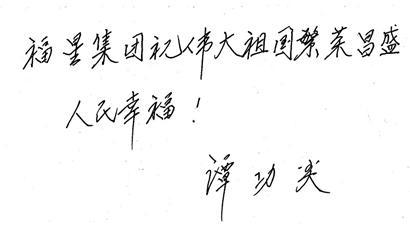 福星集团祝伟大祖国繁荣昌盛
人民幸福！
谭功炎